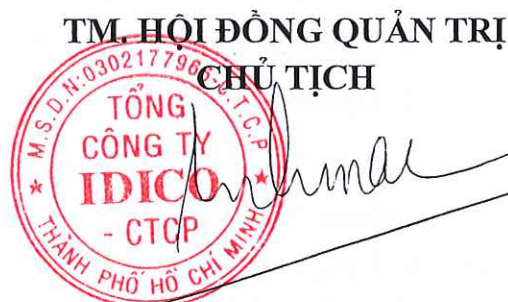 TM. HỘI ĐỒNG QUẢN TRỊ
CHỦ TỊCH
M.S.D.N:0302177966-C.T.C.P
TỔNG
CÔNG TY
IDICO
- CTCP
THÀNH PHỐ HỒ CHÍ MINH